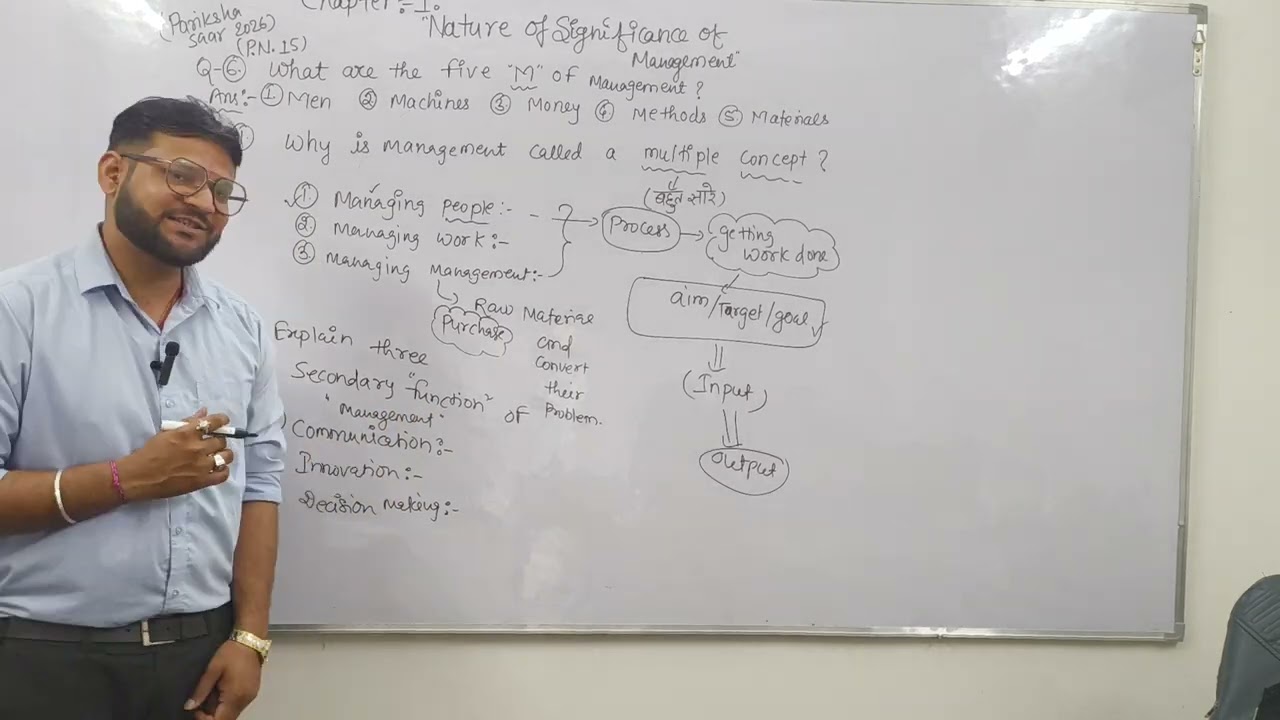 Chapter:-1.
(Pariksha saar 2026)
(P.N. 15)
"Nature of Significance of Management"
Q-6. What are the five "M" of Management?
Ans:- ① Men ② Machines ③ Money ④ Methods ⑤ Materials
Why is management called a multiple concept?
(बहुत सारे)
① Managing people:-
② Managing work:-
③ Managing Management:-
? Process
getting work done
aim/Target/goal
(Input)
Output
Purchase
Raw Material and Convert their Problem.
Explain three
Secondary "function" of
"Management"
Communication:-
Innovation:-
Decision Making:-